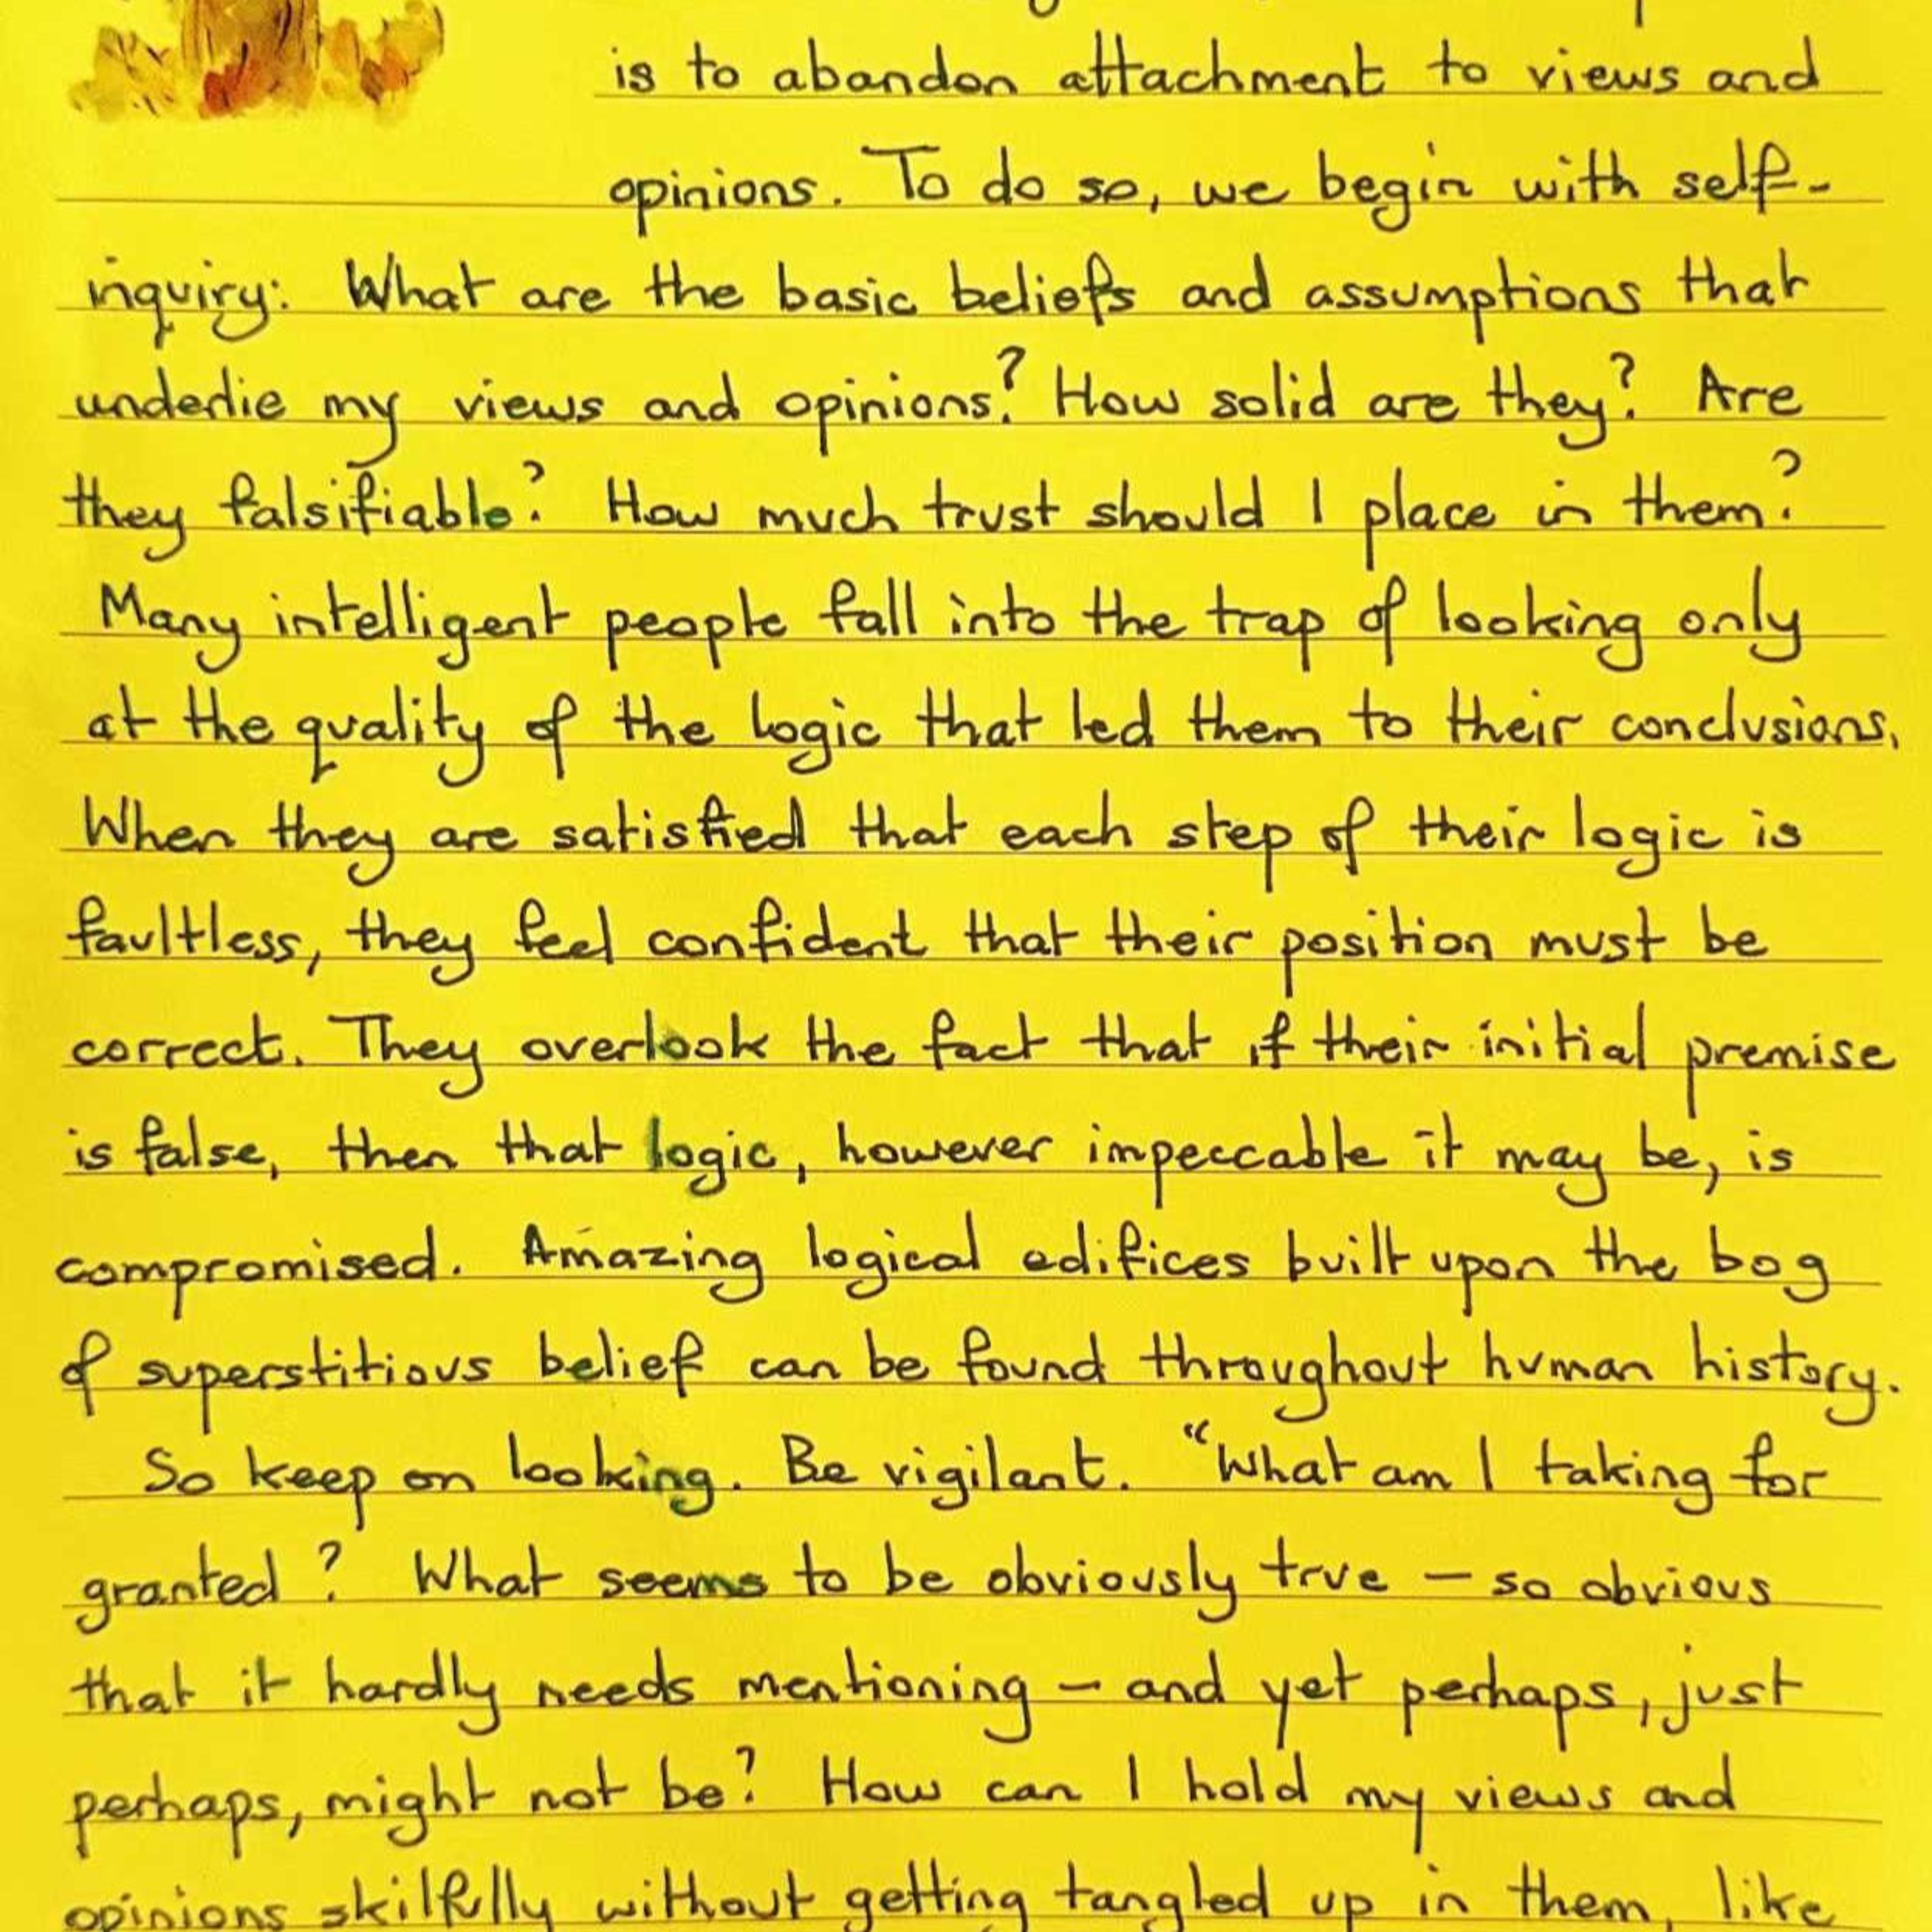 is to abandon attachment to views and
opinions. To do so, we begin with self-
inquiry: What are the basic beliefs and assumptions that
underlie my views and opinions? How solid are they? Are
they falsifiable? How much trust should I place in them?
Many intelligent people fall into the trap of looking only
at the quality of the logic that led them to their conclusions.
When they are satisfied that each step of their logic is
faultless, they feel confident that their position must be
correct. They overlook the fact that if their initial premise
is false, then that logic, however impeccable it may be, is
compromised. Amazing logical edifices built upon the bog
of superstitious belief can be found throughout human history.
So keep on looking. Be vigilant. "What am I taking for
granted? What seems to be obviously true – so obvious
that it hardly needs mentioning – and yet perhaps, just
perhaps, might not be? How can I hold my views and
opinions skilfully without getting tangled up in them, like